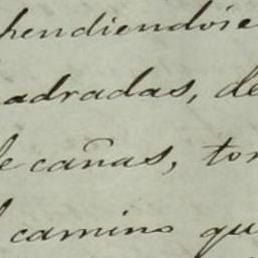 hendiendose
adradas, de
e cañas, tor
camino qu